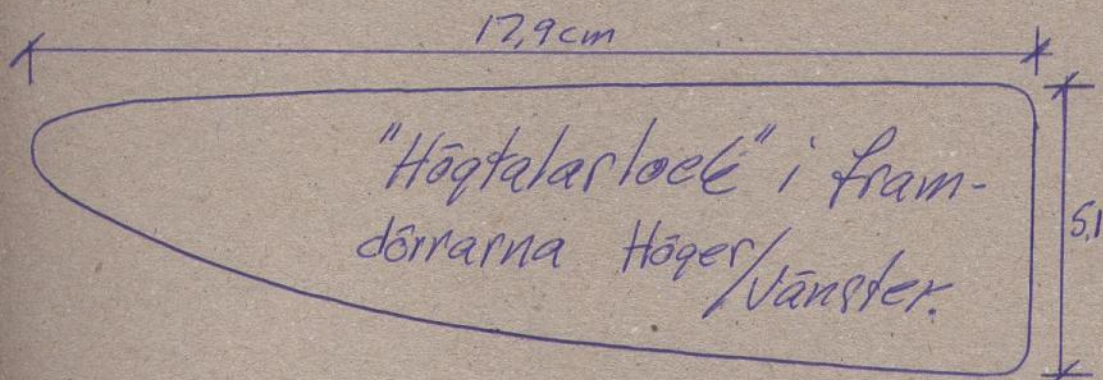 17,9cm
"Högtalarlock" i fram-
dörrarna Höger/
Vänster.
5,1